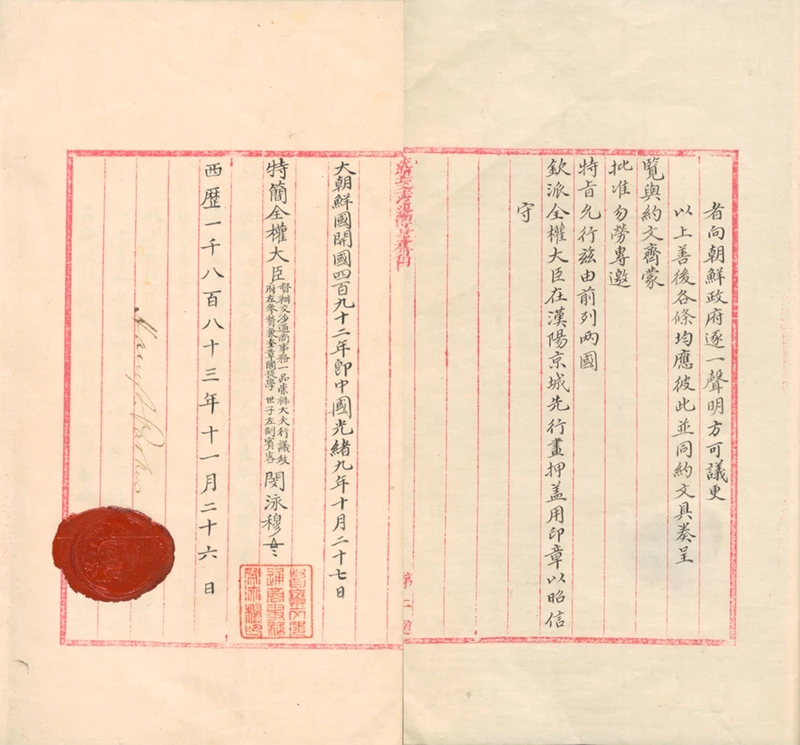 者向朝鮮政府逐一聲明方可議更
以上善後各條均應彼此並同約文具奏呈
覽與約文齊蒙
批准勿勞專邀
特旨允行兹由前列兩國
欽派全權大臣在漢陽京城先行畫押盖用印章以昭信
守
第二道
大朝鮮國開國四百九十二年即中國光緒九年十月二十七日
特簡全權大臣
督辦交涉通商事務一品崇祿大夫行議政
府左參贊兼奎章閣提學世子左副賓客
閔泳穆
西歷一千八百八十三年十一月二十六日
Harry S. Parkes